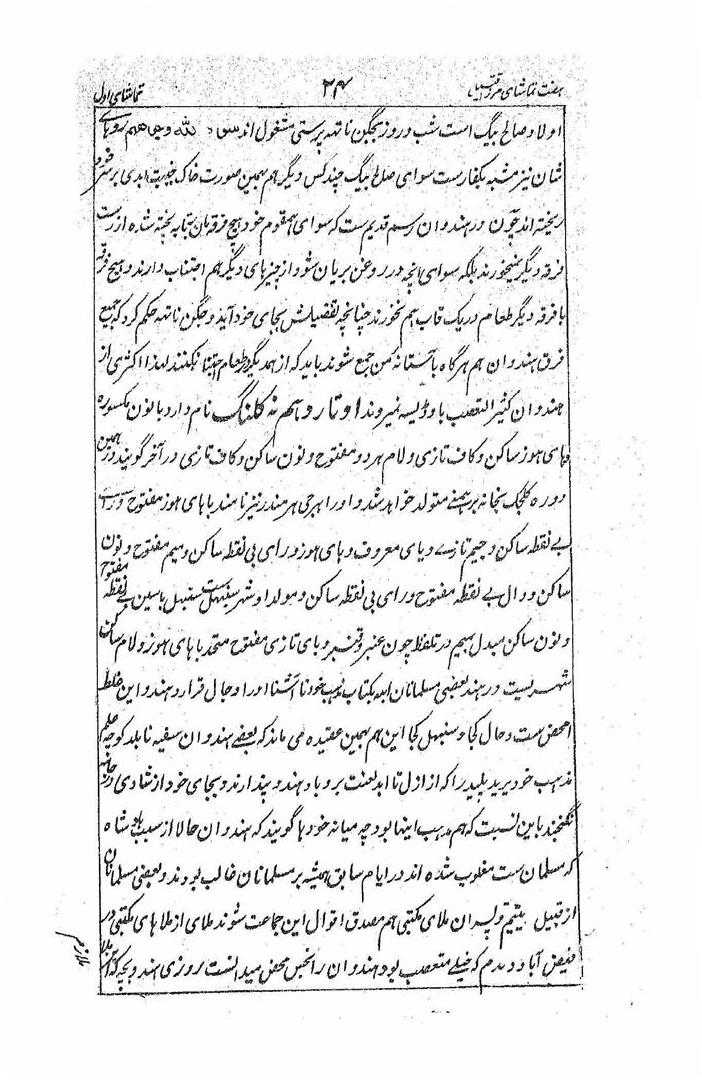 هفت تماشای مرزا قتیل ۲۴ تماشای اول
اولاد صالح بیگ است شب و روز بجگن ناتهه پرستی مشغول اند سود الله وجوههم روهای
شان نیز مشبه بکفارست سوای صالح بیگ چند کس دیگر هم بهمین صورت خاک خیبت ابدی بر فرق
ریخته اند چون در هندوان رسم قدیم ست که سوای همقوم خود هیچ فرقه نان بتابه پخته شده از دست
فرقه دیگر نمیخورند بلکه سوای انچه در روغن بریان شود از چیزهای دیگر هم اجتناب دارند و هیچ فرقه
با فرقه دیگر طعام در یک قاب هم نخورند چنانچه تفصیلش بجای خود آید و جگن ناتهه حکم کرد که جمیع
فرق هندوان هم هرگاه بآستانه من جمع شوند باید که از همدیگر در طعام اجتناب نکنند لهذا اکثری از
هندوان کثیر التعصب باوڈیسه نمیروند اوتار دهم نه کلنک نام دارد با نون مکسوره
و های هوز ساکن و کاف تازی و لام هر دو مفتوح و نون ساکن و کاف تازی در آخر گویند در همین
دوره کلجگ بخانه برهمنی متولد خواهد شد و او را هرجی هرمندر نیز نامند با های هوز مفتوح و رای
بی نقطه ساکن و جیم تازی و یای معروف و های هوز و رای بی نقطه ساکن و میم مفتوح و نون
ساکن و دال بی نقطه مفتوح و رای بی نقطه ساکن و مولد او شهر سنبهل ست سنبهل با سین بی نقطه مفتوح
و نون ساکن مبدل بمیم در تلفظ چون عنبر و قنبر و بای تازی مفتوح متحد با های هوز و لام ساکن
شهریست در هند بعضی مسلمانان ابله بکتاب مذهب خود نا آشنا او را دجال قرار دهند و این غلط
محض ست دجال کجا و سنبهل کجا این هم بهمین عقیده می ماند که بعضی هندوان سفیه نابلد کوچه علم
مذهب خود یزید پلید را که از ازل تا ابد لعنت برو باد هندو پندارند و بجای خود از شادی در جامه
نگنجند باین نسبت که هم مذهب اینها بود چه میانه خودها گویند که هندوان حالا از سبب بادشاه
که مسلمان ست مغلوب شده اند در ایام سابق همیشه بر مسلمانان غالب بودند و بعضی مسلمانان
از قبیل یتیم و پسران ملای مکتبی هم مصدق اقوال این جماعت شوند ملای از ملاهای مکتبی در
فیض آباد دیدم که خیلی متعصب بود هندوان را نجس محض میدانست روزی هندو بچه که